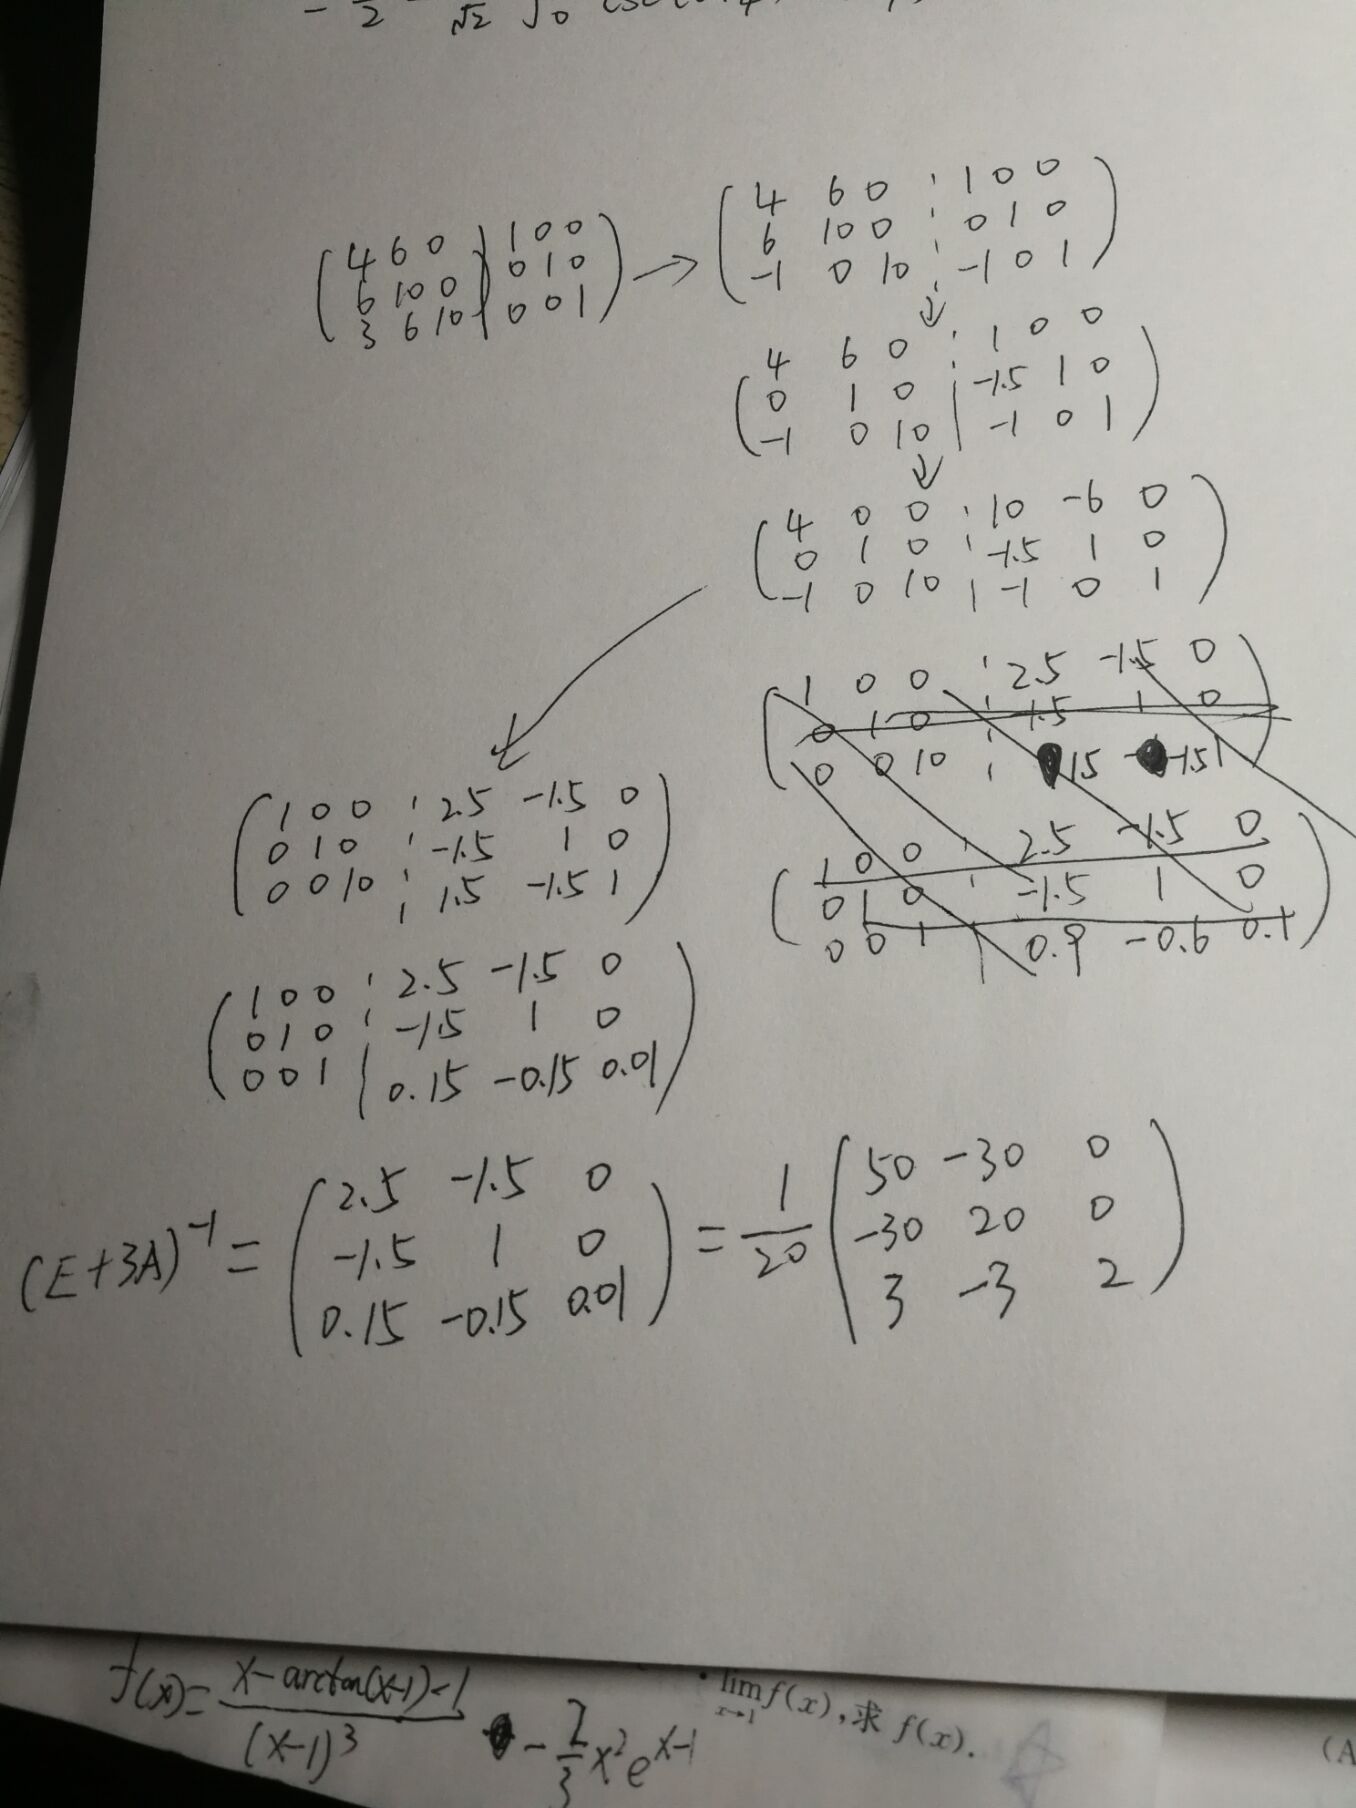 - 2 √2 ∫0
4 6 0 | 1 0 0
6 10 0 | 0 1 0
3 6 10 | 0 0 1
→
4 6 0 ¦ 1 0 0
6 10 0 ¦ 0 1 0
-1 0 10 ¦ -1 0 1
↓
4 6 0 ¦ 1 0 0
0 1 0 | -1.5 1 0
-1 0 10 | -1 0 1
↓
4 0 0 ¦ 10 -6 0
0 1 0 ¦ -1.5 1 0
-1 0 10 | -1 0 1
1 0 0 ¦ 2.5 -1.5 0
0 1 0 ¦ -1.5 1 0
0 0 10 ¦ 15 -1.5 1
1 0 0 ¦ 2.5 -1.5 0
0 1 0 ¦ -1.5 1 0
0 0 1 | 0.9 -0.6 0.1
1 0 0 ¦ 2.5 -1.5 0
0 1 0 ¦ -1.5 1 0
0 0 10 ¦ 1.5 -1.5 1
1 0 0 ¦ 2.5 -1.5 0
0 1 0 ¦ -1.5 1 0
0 0 1 | 0.15 -0.15 0.01
(E+3A)⁻¹ = ( 2.5 -1.5 0 = 1/20 ( 50 -30 0
-1.5 1 0 -30 20 0
0.15 -0.15 0.01 ) 3 -3 2 )
f(x)= x-arctan(x-1)-1 / (x-1)³ - 2/3 x² e^(x-1)
· lim x→1 f(x),求 f(x).
(A